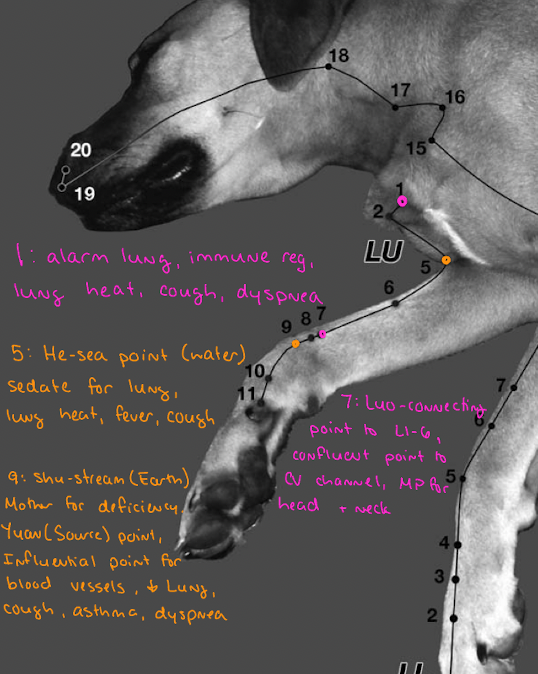 18
17
16
15
20
19
1
2
LU
5
6
7
8
9
10
11
7
6
5
4
3
2
LI
1: alarm lung, immune reg,
lung heat, cough, dyspnea
5: He-sea point (water)
sedate for lung,
lung heat, fever, cough
7: Luo-connecting
point to LI-6,
confluent point to
CV channel, MP for
head + neck
9: Shu-stream (Earth)
Mother for deficiency.
Yuan (Source) point,
Influential point for
blood vessels, ↓ Lung,
cough, asthma, dyspnea